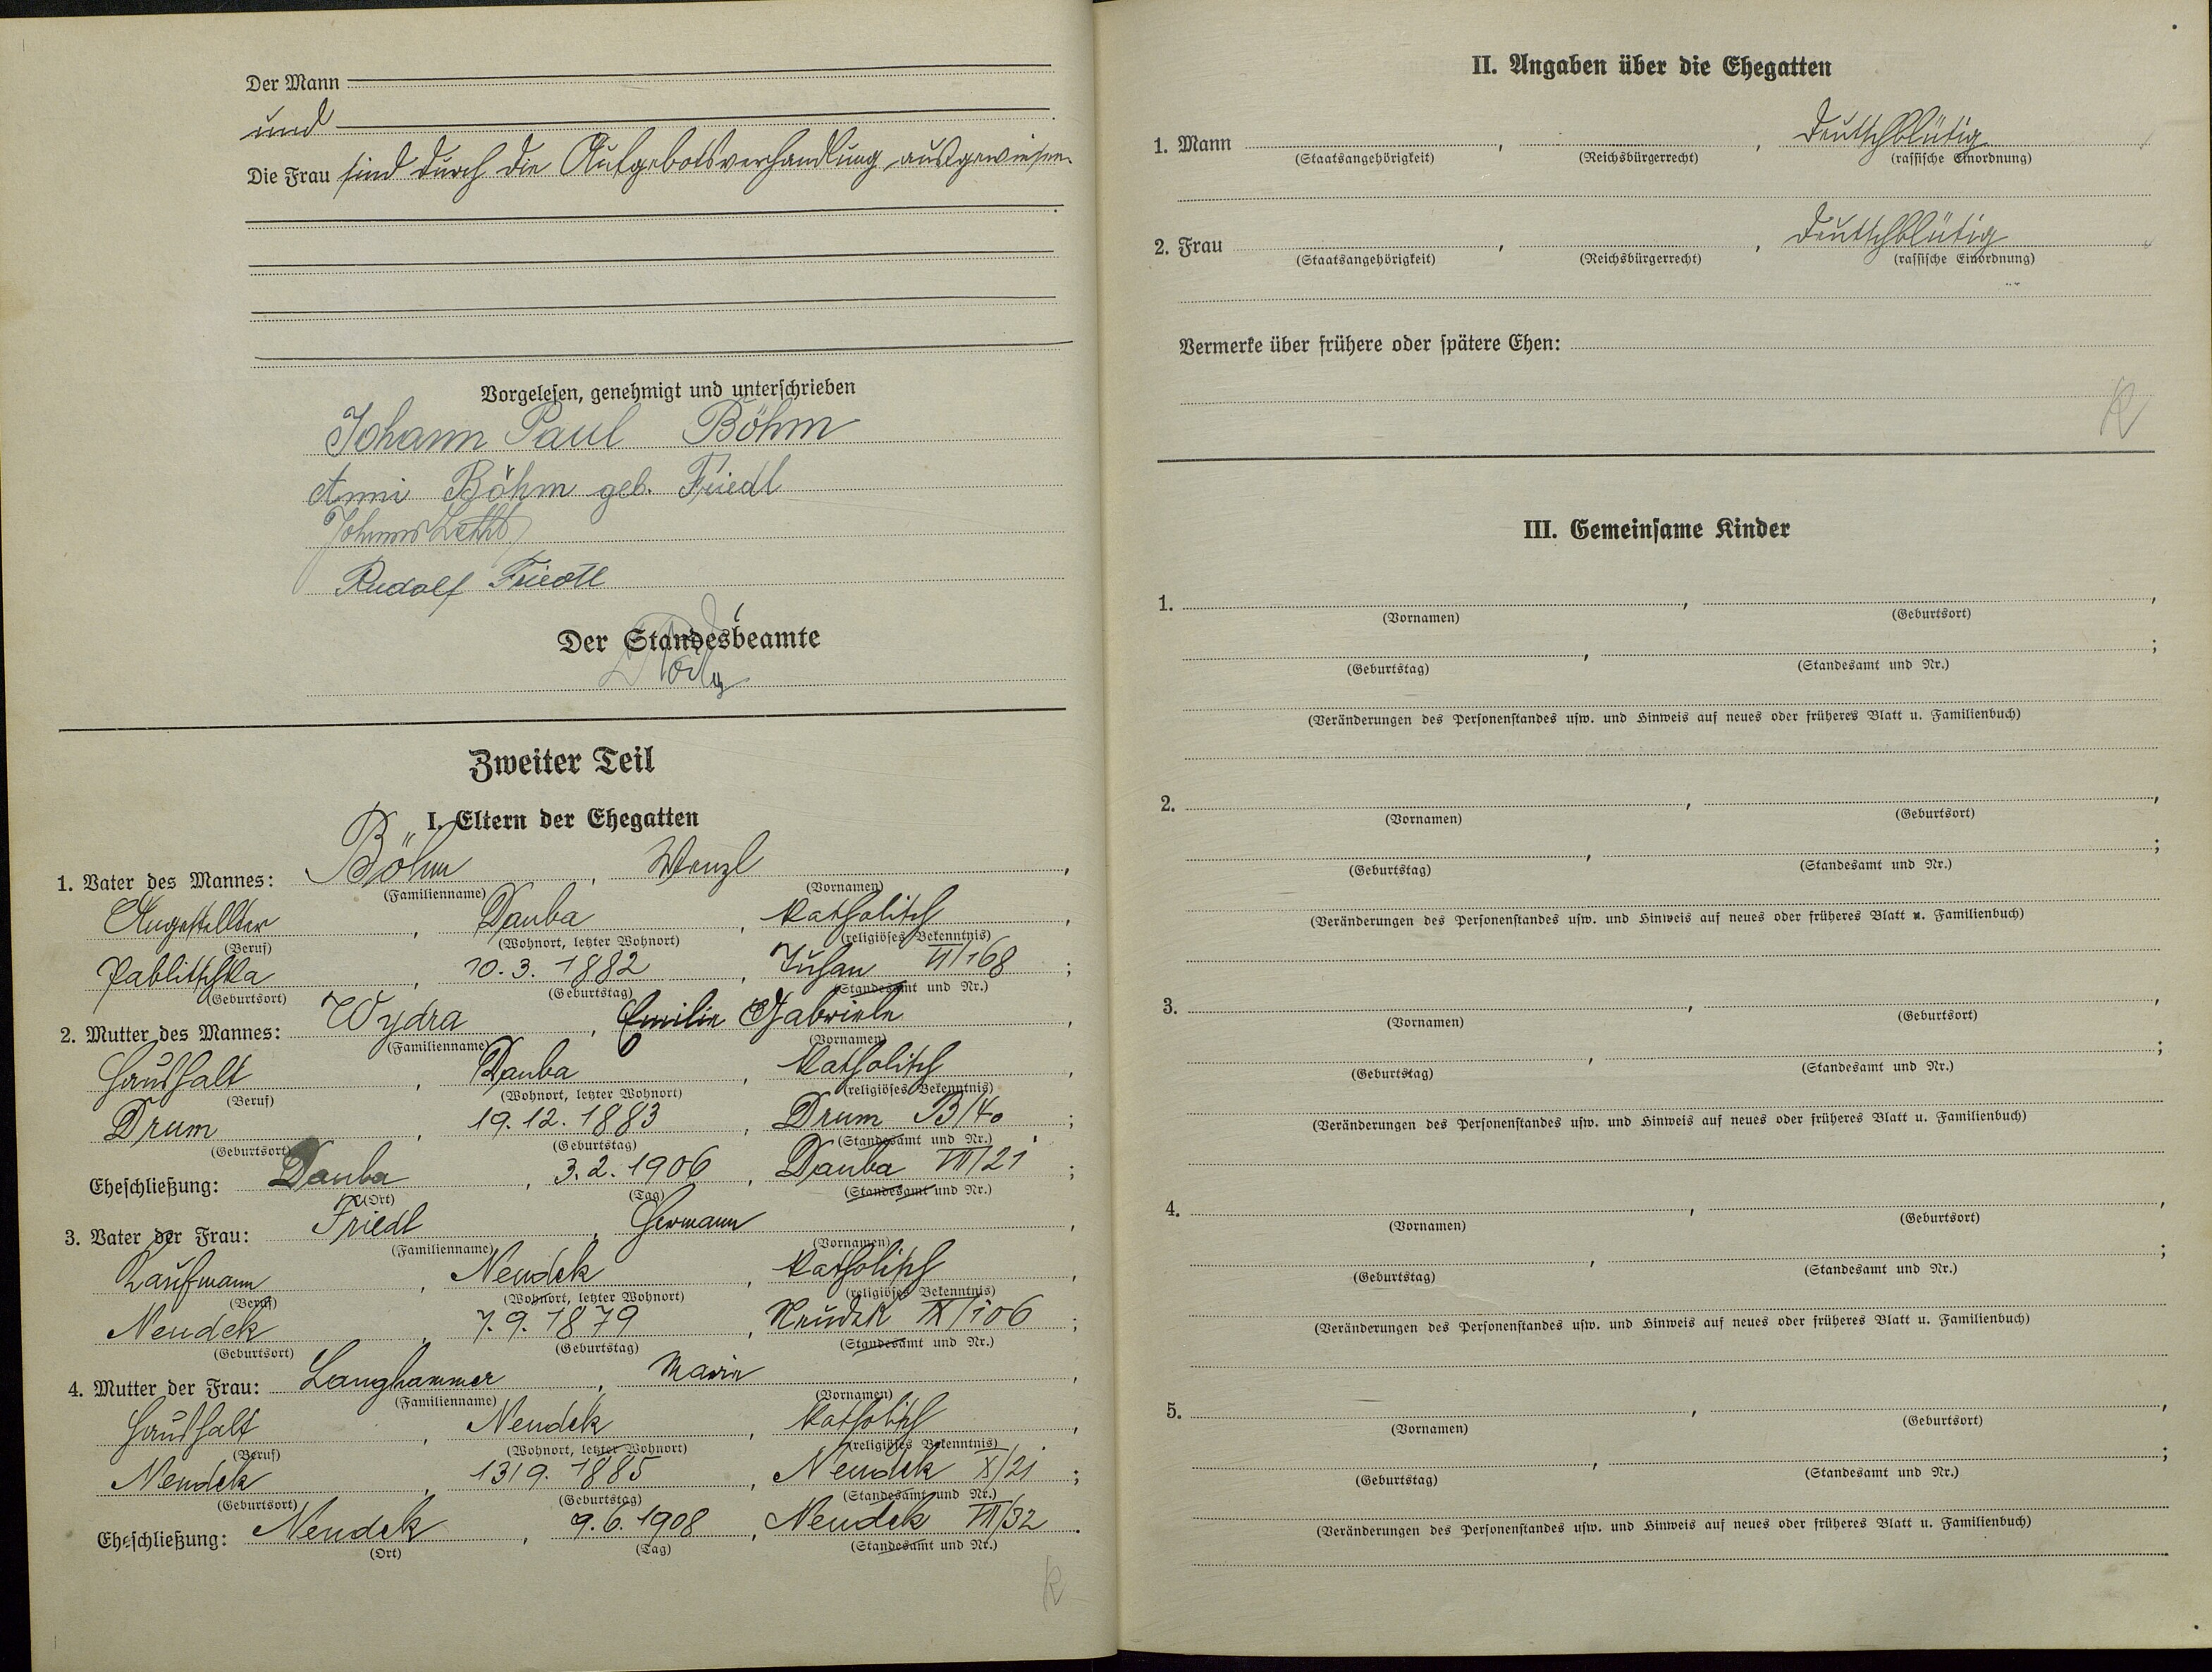 Der Mann
und
Die Frau sind durch die Aufgebotsverhandlung ausgewiesen.
Vorgelesen, genehmigt und unterschrieben
Johann Paul Böhm
Anni Böhm geb. Friedl
Rudolf Friedl
Der Standesbeamte
Zweiter Teil
I. Eltern der Ehegatten
1. Vater des Mannes: Böhm, Wenzl,
(Familienname) (Vornamen)
Angestellter, Dauba, katholisch,
(Beruf) (Wohnort, letzter Wohnort) (religiöses Bekenntnis)
Pablitschka, 10.3.1882, Tuhan II/168;
(Geburtsort) (Geburtstag) (Standesamt und Nr.)
2. Mutter des Mannes: Wydra, Emilie Gabriele,
(Familienname) (Vornamen)
Haushalt, Dauba, katholisch,
(Beruf) (Wohnort, letzter Wohnort) (religiöses Bekenntnis)
Drum, 19.12.1883, Drum B/40;
(Geburtsort) (Geburtstag) (Standesamt und Nr.)
Eheschließung: Dauba, 3.2.1906, Dauba VII/21;
(Ort) (Tag) (Standesamt und Nr.)
3. Vater der Frau: Friedl, Hermann,
(Familienname) (Vornamen)
Kaufmann, Neudek, katholisch,
(Beruf) (Wohnort, letzter Wohnort) (religiöses Bekenntnis)
Neudek, 7.9.1879, Neudek IX/106;
(Geburtsort) (Geburtstag) (Standesamt und Nr.)
4. Mutter der Frau: Langhammer, Marie,
(Familienname) (Vornamen)
Haushalt, Neudek, katholisch,
(Beruf) (Wohnort, letzter Wohnort) (religiöses Bekenntnis)
Neudek, 1885, Neudek X/21;
(Geburtsort) (Geburtstag) (Standesamt und Nr.)
Eheschließung: Neudek, 9.6.1908, Neudek VII/32.
(Ort) (Tag) (Standesamt und Nr.)
II. Angaben über die Ehegatten
1. Mann , , Deutschblütig
(Staatsangehörigkeit) (Reichsbürgerrecht) (rassische Einordnung)
2. Frau , , Deutschblütig
(Staatsangehörigkeit) (Reichsbürgerrecht) (rassische Einordnung)
Vermerke über frühere oder spätere Ehen:
III. Gemeinsame Kinder
1. , ,
(Vornamen) (Geburtsort)
, ;
(Geburtstag) (Standesamt und Nr.)
(Veränderungen des Personenstandes usw. und Hinweis auf neues oder früheres Blatt u. Familienbuch)
2. , ,
(Vornamen) (Geburtsort)
, ;
(Geburtstag) (Standesamt und Nr.)
(Veränderungen des Personenstandes usw. und Hinweis auf neues oder früheres Blatt u. Familienbuch)
3. , ,
(Vornamen) (Geburtsort)
, ;
(Geburtstag) (Standesamt und Nr.)
(Veränderungen des Personenstandes usw. und Hinweis auf neues oder früheres Blatt u. Familienbuch)
4. , ,
(Vornamen) (Geburtsort)
, ;
(Geburtstag) (Standesamt und Nr.)
(Veränderungen des Personenstandes usw. und Hinweis auf neues oder früheres Blatt u. Familienbuch)
5. , ,
(Vornamen) (Geburtsort)
, ;
(Geburtstag) (Standesamt und Nr.)
(Veränderungen des Personenstandes usw. und Hinweis auf neues oder früheres Blatt u. Familienbuch)